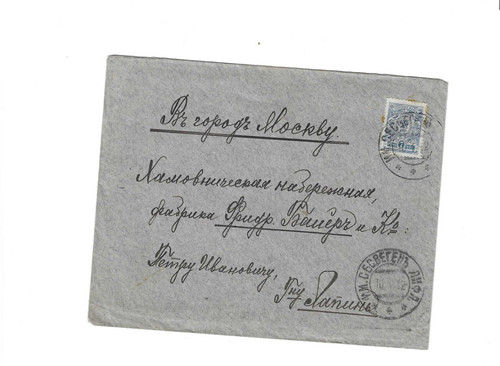 Въ городъ Москву.
Хамовническая набережная,
фабрика Фридр. Байеръ и Ко:
Петру Ивановичу,
Гну Лапинъ
СЕСВЕГЕНЪ ЛИФЛ.